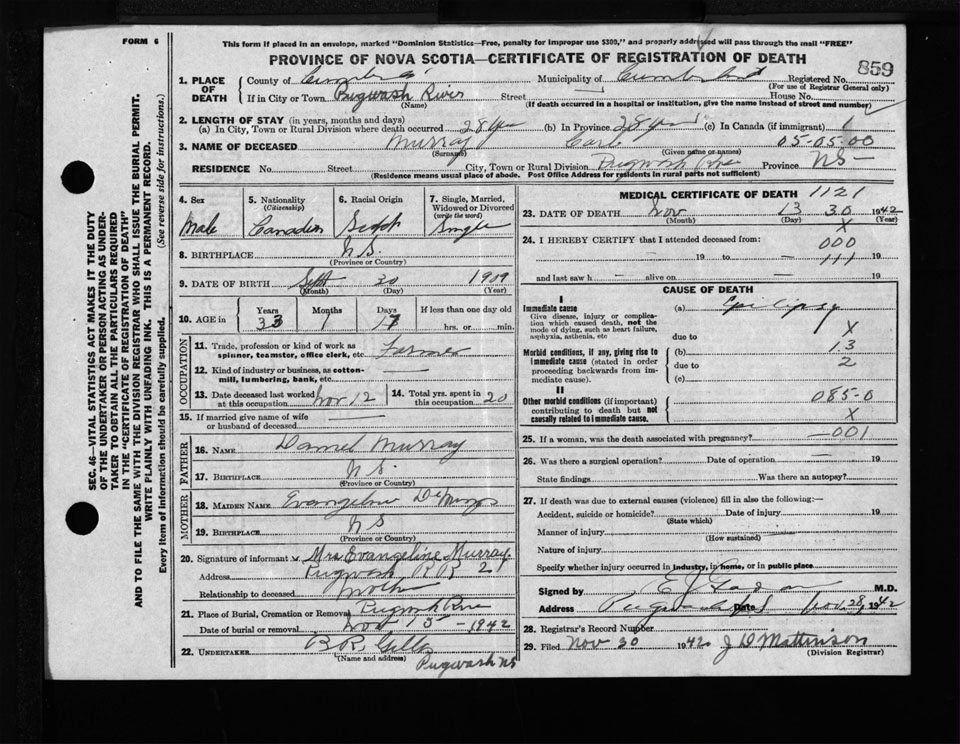 FORM 6
This form if placed in an envelope, marked "Dominion Statistics—Free, penalty for improper use $300," and properly addressed will pass through the mail "FREE"
PROVINCE OF NOVA SCOTIA—CERTIFICATE OF REGISTRATION OF DEATH
859
1. PLACE OF DEATH
County of Municipality of Cumberland Registered No.
(For use of Registrar General only)
If in City or Town Pugwash River Street House No.
(Name) (If death occurred in a hospital or institution, give the name instead of street and number)
2. LENGTH OF STAY (in years, months and days)
(a) In City, Town or Rural Division where death occurred 28 yrs (b) In Province 28 yrs (c) In Canada (if immigrant)
3. NAME OF DECEASED Murray Carl 05-05-00
(Surname) (Given name or names)
RESIDENCE No. Street City, Town or Rural Division Pugwash River Province NS—
(Residence means usual place of abode. Post Office Address for residents in rural parts not sufficient)
4. Sex
Male
5. Nationality (Citizenship)
Canadian
6. Racial Origin
7. Single, Married, Widowed or Divorced (write the word)
Single
8. BIRTHPLACE N.S.
(Province or Country)
9. DATE OF BIRTH Sept 30 1909
(Month) (Day) (Year)
10. AGE in Years Months Days If less than one day
33 1 hrs. or min.
OCCUPATION
11. Trade, profession or kind of work as spinner, teamster, office clerk, etc. Farmer
12. Kind of industry or business, as cotton-mill, lumbering, bank, etc. —
13. Date deceased last worked at this occupation Nov 12
14. Total yrs. spent in this occupation 20
15. If married give name of wife or husband of deceased
FATHER
16. NAME Daniel Murray
17. BIRTHPLACE N.S.
(Province or Country)
MOTHER
18. MAIDEN NAME Evangeline
19. BIRTHPLACE NS
(Province or Country)
20. Signature of informant Mrs Evangeline Murray
Address Pugwash R R 2
Relationship to deceased Mother
21. Place of Burial, Cremation or Removal Pugwash River
Date of burial or removal Nov 15 — 1942
22. UNDERTAKER
(Name and address) Pugwash NS
MEDICAL CERTIFICATE OF DEATH 1121
23. DATE OF DEATH Nov 13 30 1942
(Month) (Day) (Year)
X
24. I HEREBY CERTIFY that I attended deceased from: 000
— 19 to — 111 19
and last saw h — alive on — 19
CAUSE OF DEATH
I
Immediate cause (a) Epilepsy
Give disease, injury or complication which caused death, not the mode of dying, such as heart failure, asphyxia, asthenia, etc
due to X
Morbid conditions, if any, giving rise to immediate cause (stated in order proceeding backwards from immediate cause).
(b) 13
due to 2
(c)
II
Other morbid conditions (if important) contributing to death but not causally related to immediate cause.
085-0
X
25. If a woman, was the death associated with pregnancy? 001
26. Was there a surgical operation? — Date of operation — 19
State findings Was there an autopsy?
27. If death was due to external causes (violence) fill in also the following:—
Accident, suicide or homicide? Date of injury 19
(State which)
Manner of injury
(How sustained)
Nature of injury
Specify whether injury occurred in industry, in home, or in public place
Signed by M.D.
Address Date Nov. 28, 1942
28. Registrar's Record Number
29. Filed Nov 30 1942 J D Mattinson
(Division Registrar)
SEC. 46—VITAL STATISTICS ACT MAKES IT THE DUTY
OF THE UNDERTAKER OR PERSON ACTING AS UNDER-
TAKER TO OBTAIN ALL THE PARTICULARS REQUIRED
IN THE "CERTIFICATE OF REGISTRATION OF DEATH"
AND TO FILE THE SAME WITH THE DIVISION REGISTRAR WHO SHALL ISSUE THE BURIAL PERMIT.
WRITE PLAINLY WITH UNFADING INK. THIS IS A PERMANENT RECORD.
Every item of information should be carefully supplied. (See reverse side for instructions.)